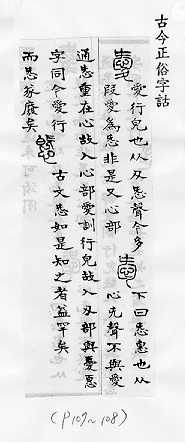 古今正俗字詁
愛行皃也从夊㤅聲今多
叚愛為㤅非是又心部
下曰㤅惠也从
心旡聲不與愛
通㤅重在心故入心部愛訓行皃故入夊部與憂惪
字同今愛行
而㤅㒸廢矣
古文㤅如是知之者葢罕矣
(P107~108)